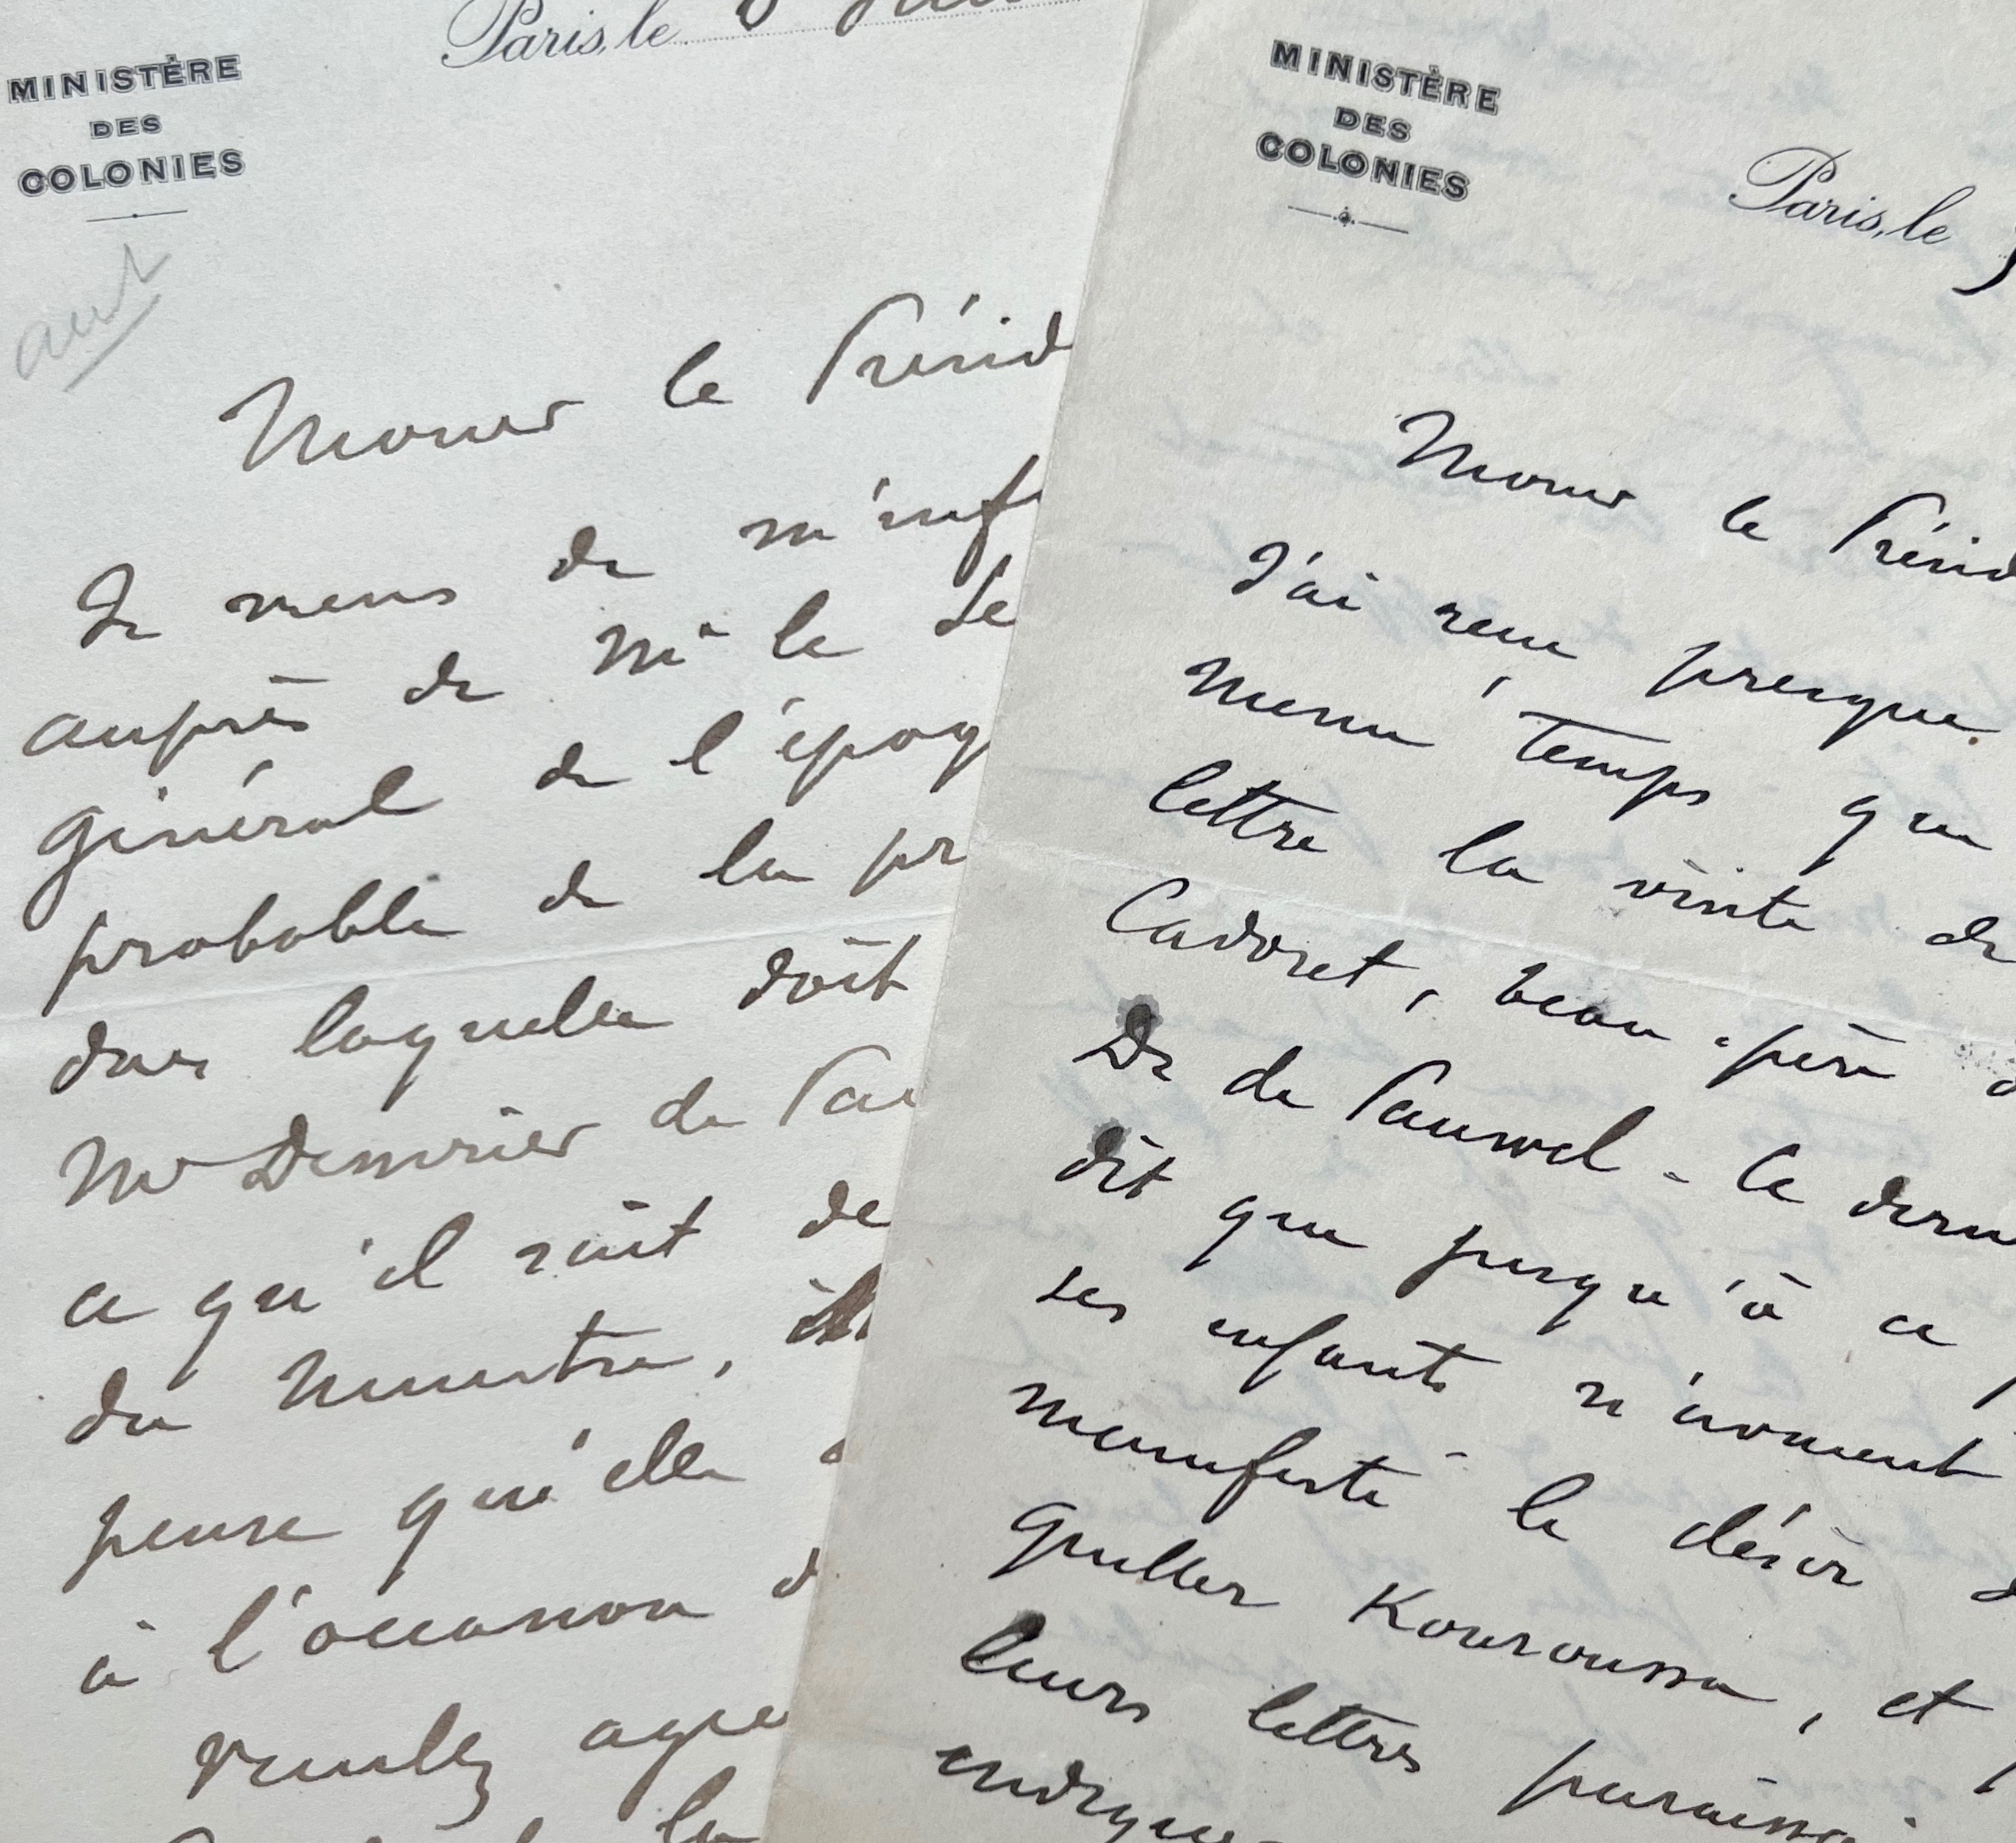 Paris, le 8
MINISTÈRE
DES
COLONIES
Monsieur le Présid
Je viens de m'inf
auprès de Mr le Se
général de l'époq
probable de la pr
dans laquelle doit
Mr de Pau
ce qu'il soit de
du Ministre,
pense qu'elle
à l'occasion d
veuillez agré
MINISTÈRE
DES
COLONIES
Paris, le
Monsieur le Présid
J'ai reçu presque
même temps que
lettre la visite de
Cadoret, beau-père d
Dr de Pauwel - ce dern
dit que jusqu'à ce
ses enfants n'avaient
manifesté le désir d
quitter Kouroussa, et
leurs lettres paraiss
indique